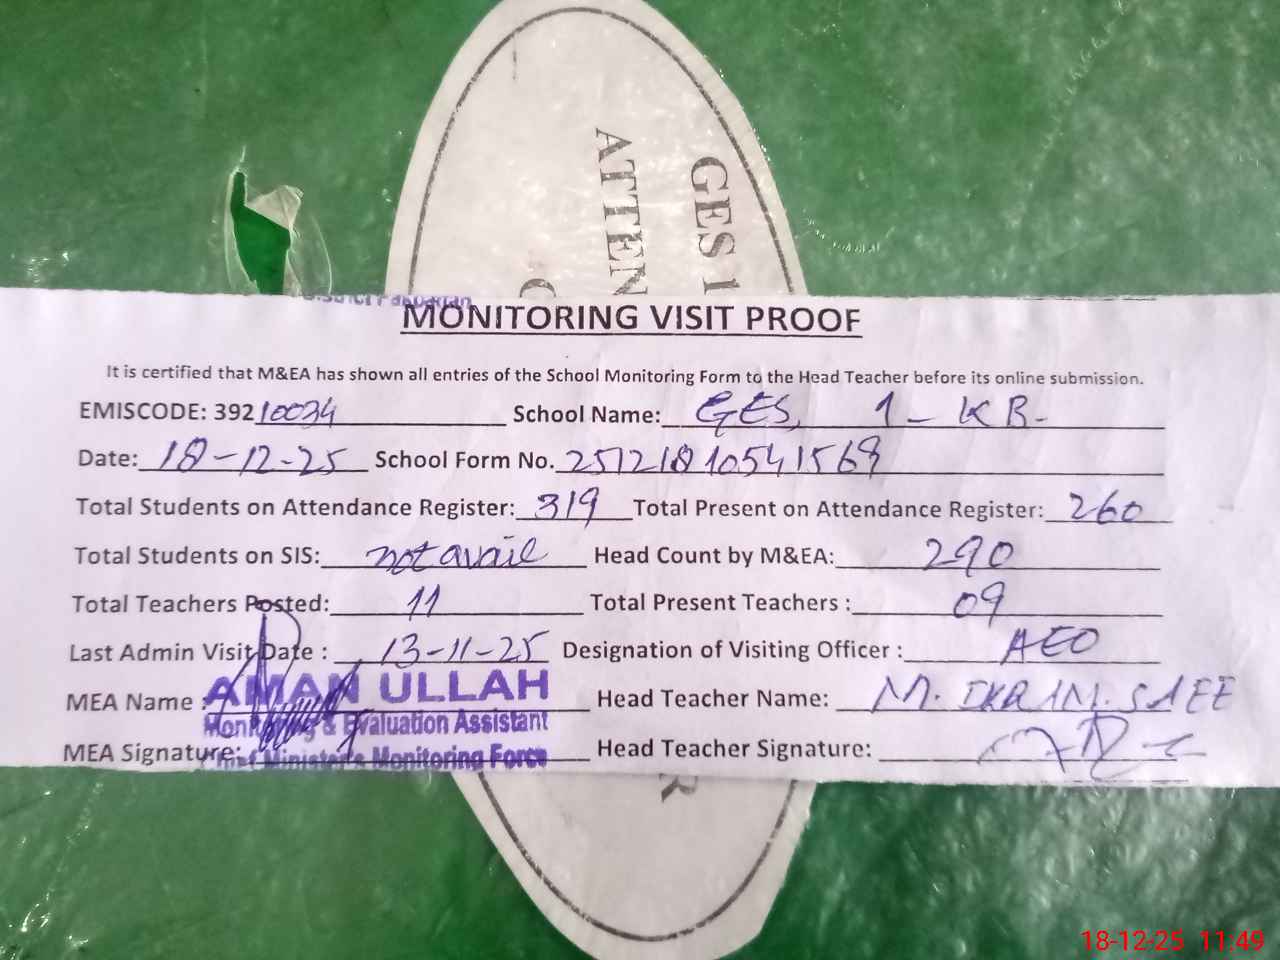 GES 1
ATTEN
C
District Pakpattan
MONITORING VISIT PROOF
It is certified that M&EA has shown all entries of the School Monitoring Form to the Head Teacher before its online submission.
EMISCODE: 39210034 School Name: GES, 1-KB-
Date: 18-12-25 School Form No. 25121810541569
Total Students on Attendance Register: 319 Total Present on Attendance Register: 260
Total Students on SIS: not avail Head Count by M&EA: 290
Total Teachers Posted: 11 Total Present Teachers : 09
Last Admin Visit Date : 13-11-25 Designation of Visiting Officer : AEO
MEA Name : AMAN ULLAH Head Teacher Name: M. IKRAM. SAEE
Monitoring & Evaluation Assistant
MEA Signature: Head Teacher Signature:
Chief Minister's Monitoring Force
R
18-12-25 11:49